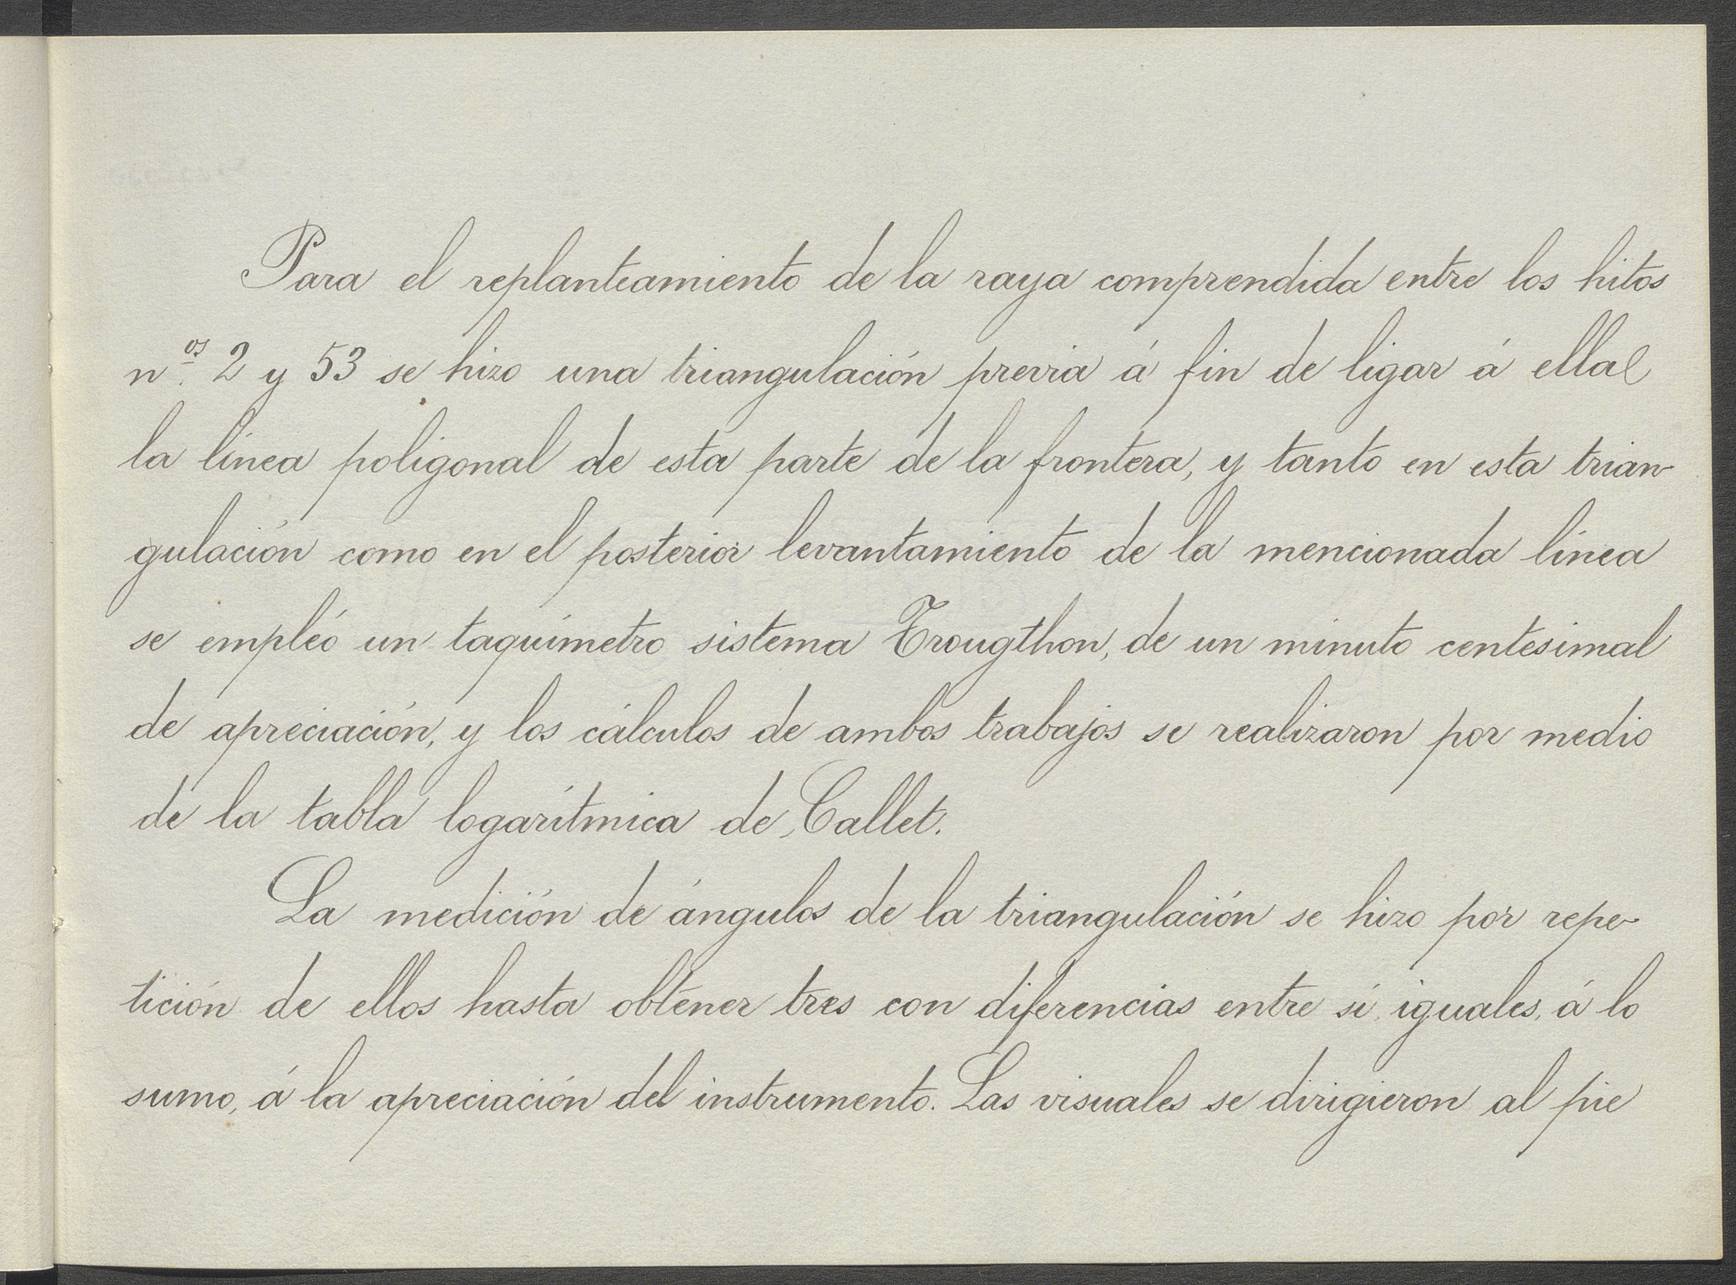 Para el replanteamiento de la raya comprendida entre los hitos
n.os 2 y 53 se hizo una triangulación previa á fin de ligar á ella
la línea poligonal de esta parte de la frontera, y tanto en esta trian-
gulación como en el posterior levantamiento de la mencionada línea
se empleó un taquímetro sistema Trougthon, de un minuto centesimal
de apreciación, y los cálculos de ambos trabajos se realizaron por medio
de la tabla logarítmica de Callet.
La medición de ángulos de la triangulación se hizo por repe-
tición de ellos hasta obtener tres con diferencias entre sí iguales, á lo
sumo, á la apreciación del instrumento. Las visuales se dirigieron al pie